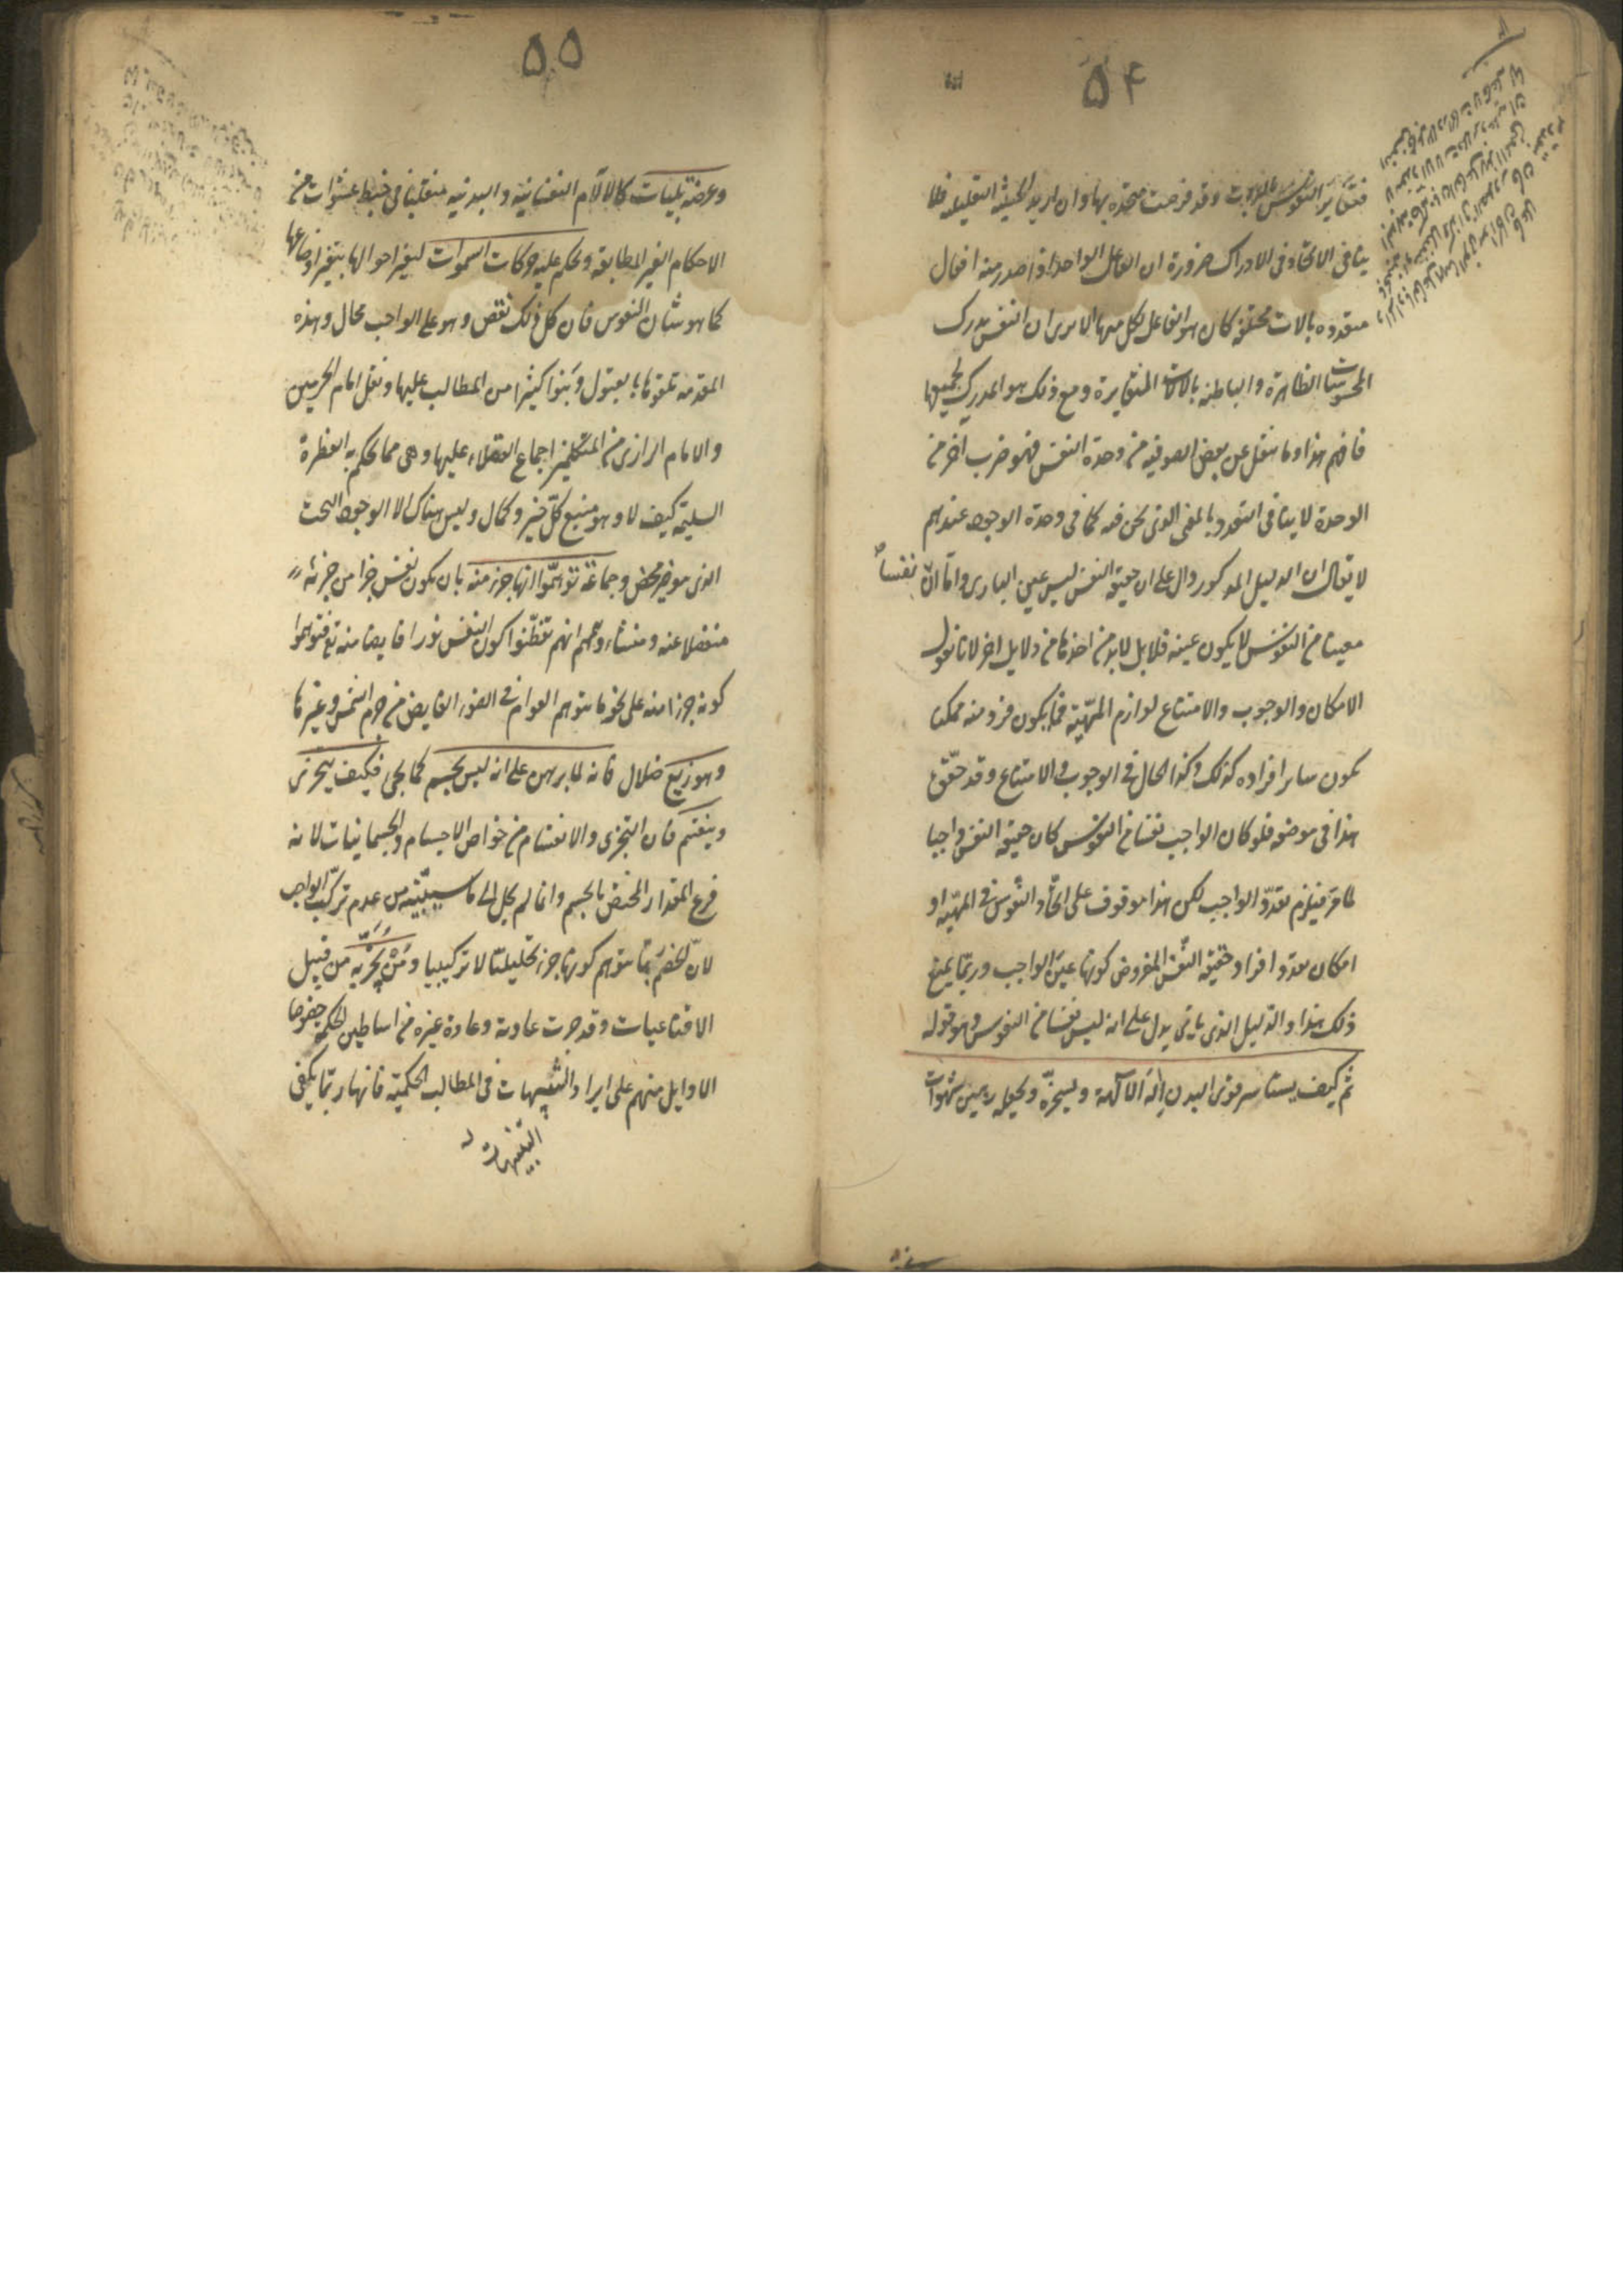 ٥٤
فتغاير النفوس بالذات وقد فرضت متحدة بها وان اريد الحيثية التعليلية فلا
ينافي الاتحاد في الادراك ضرورة ان الفاعل الواحد اذا صدر منه افعال
متعددة بالات مختلفة كان هو الفاعل لكل منها الا يرى ان النفس يدرك
المحسوسات الظاهرة والباطنة بالالات المتغايرة ومع ذلك هو المدرك لجميعها
فافهم هذا وما ينقل عن بعض الصوفية من وحدة النفس فهو ضرب آخر من
الوحدة لا ينافي التعدد بالمعنى الذي نحن فيه كما في وحدة الوجود عندهم
لا يقال ان الدليل المذكور دال على ان حقيقة النفس ليس عين الباري واما ان نفساً
معينا من النفوس لا يكون عينه فلا بل لا بد من اخذها من دلايل اخر لانا نقول
الامكان والوجوب والامتناع لوازم المهية فما يكون فرد منه ممكنا
يكون ساير افراده كذلك وكذا الحال في الوجوب والامتناع وقد حقق
هذا في موضعه فلو كان الواجب نفسا من النفوس كان حقيقة النفس واجبا
لما مر فيلزم تعدد الواجب لكن هذا موقوف على اتحاد النفوس في المهية او
امكان تعدد افراد حقيقة النفس المفروض كونها عين الواجب وربما يمنع
ذلك هذا والدليل الذي ياتي يدل على انه ليس نفسا من النفوس وهو قوله
ثم كيف يستاسر قوى البدن اله الآلهة ويسخره ويجعله رهين شهوات
٥٥
وعرضة بليات كالآلام النفسانية والبدنية متقلبا في خبط عشوات من
الاحكام الغير المطابقة ويحكم عليه حركات السموات ليغير احوالها بتغير اوضاعها
كما هو شان النفوس فان كل ذلك نقص وهو على الواجب محال وهذه
المقدمة تلقوها بالقبول وبنوا كثيرا من المطالب عليها ونقل امام الحرمين
والامام الرازي من المتكلمين اجماع العقلاء عليها وهي مما يحكم به الفطرة
السليمة كيف لا وهو منبع كل خير وكمال وليس هناك الا الوجود البحت
الذي هو خير محض وجماعة توهموا انها جزء منه بان يكون نفس جزا من جزئه
منفصلا عنه ومنشاء وهمهم انهم تفطنوا كون النفس نورا فايضا منه تع فتوهموا
كونه جزءا منه على نحو ما يتوهم العوام في الضوء الفايض من جرم الشمس وغيرها
وهو زيغ ضلال فانه لما برهن على انه ليس بجسم كما يجي فكيف يتجزى
وينقسم فان التجزي والانقسام من خواص الاجسام والجسمانيات لانه
فرع المقدار المختص بالجسم وانما لم يحل الى ما سيبينه من عدم تركب الواجب
لان الخصم ربما يتوهم كونها جزء تحليليا لا تركيبيا ومن يجزيه من قبيل
الاقناعيات وقد جرت عادته وعادة غيره من اساطين الحكمة خصوصا
الاوايل منهم على ايراد التنبيهات في المطالب الحكمية فانها ربما يكفي
التنبيهات